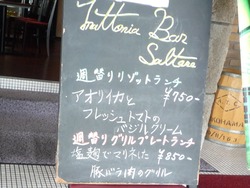 Trattoria Bar
Saltare
週替りリゾットランチ
アオリイカと ¥750-
フレッシュトマトの
バジルクリーム
週替りグリルプレートランチ
塩麹でマリネした ¥850-
豚バラ肉のグリル